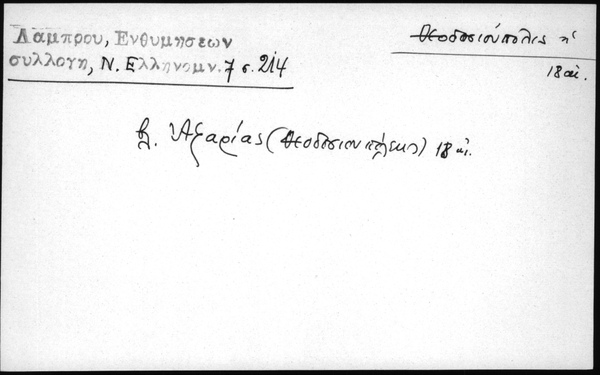 Λαμπρου, Ενθυμησεων
συλλογη, Ν. Ελληνομν. 7 σ. 214
Θεοδοσιούπολις ἡ
18 αἰ.
βλ. Ἀζαρίας (Θεοδοσιουπόλεως) 18 αἰ.